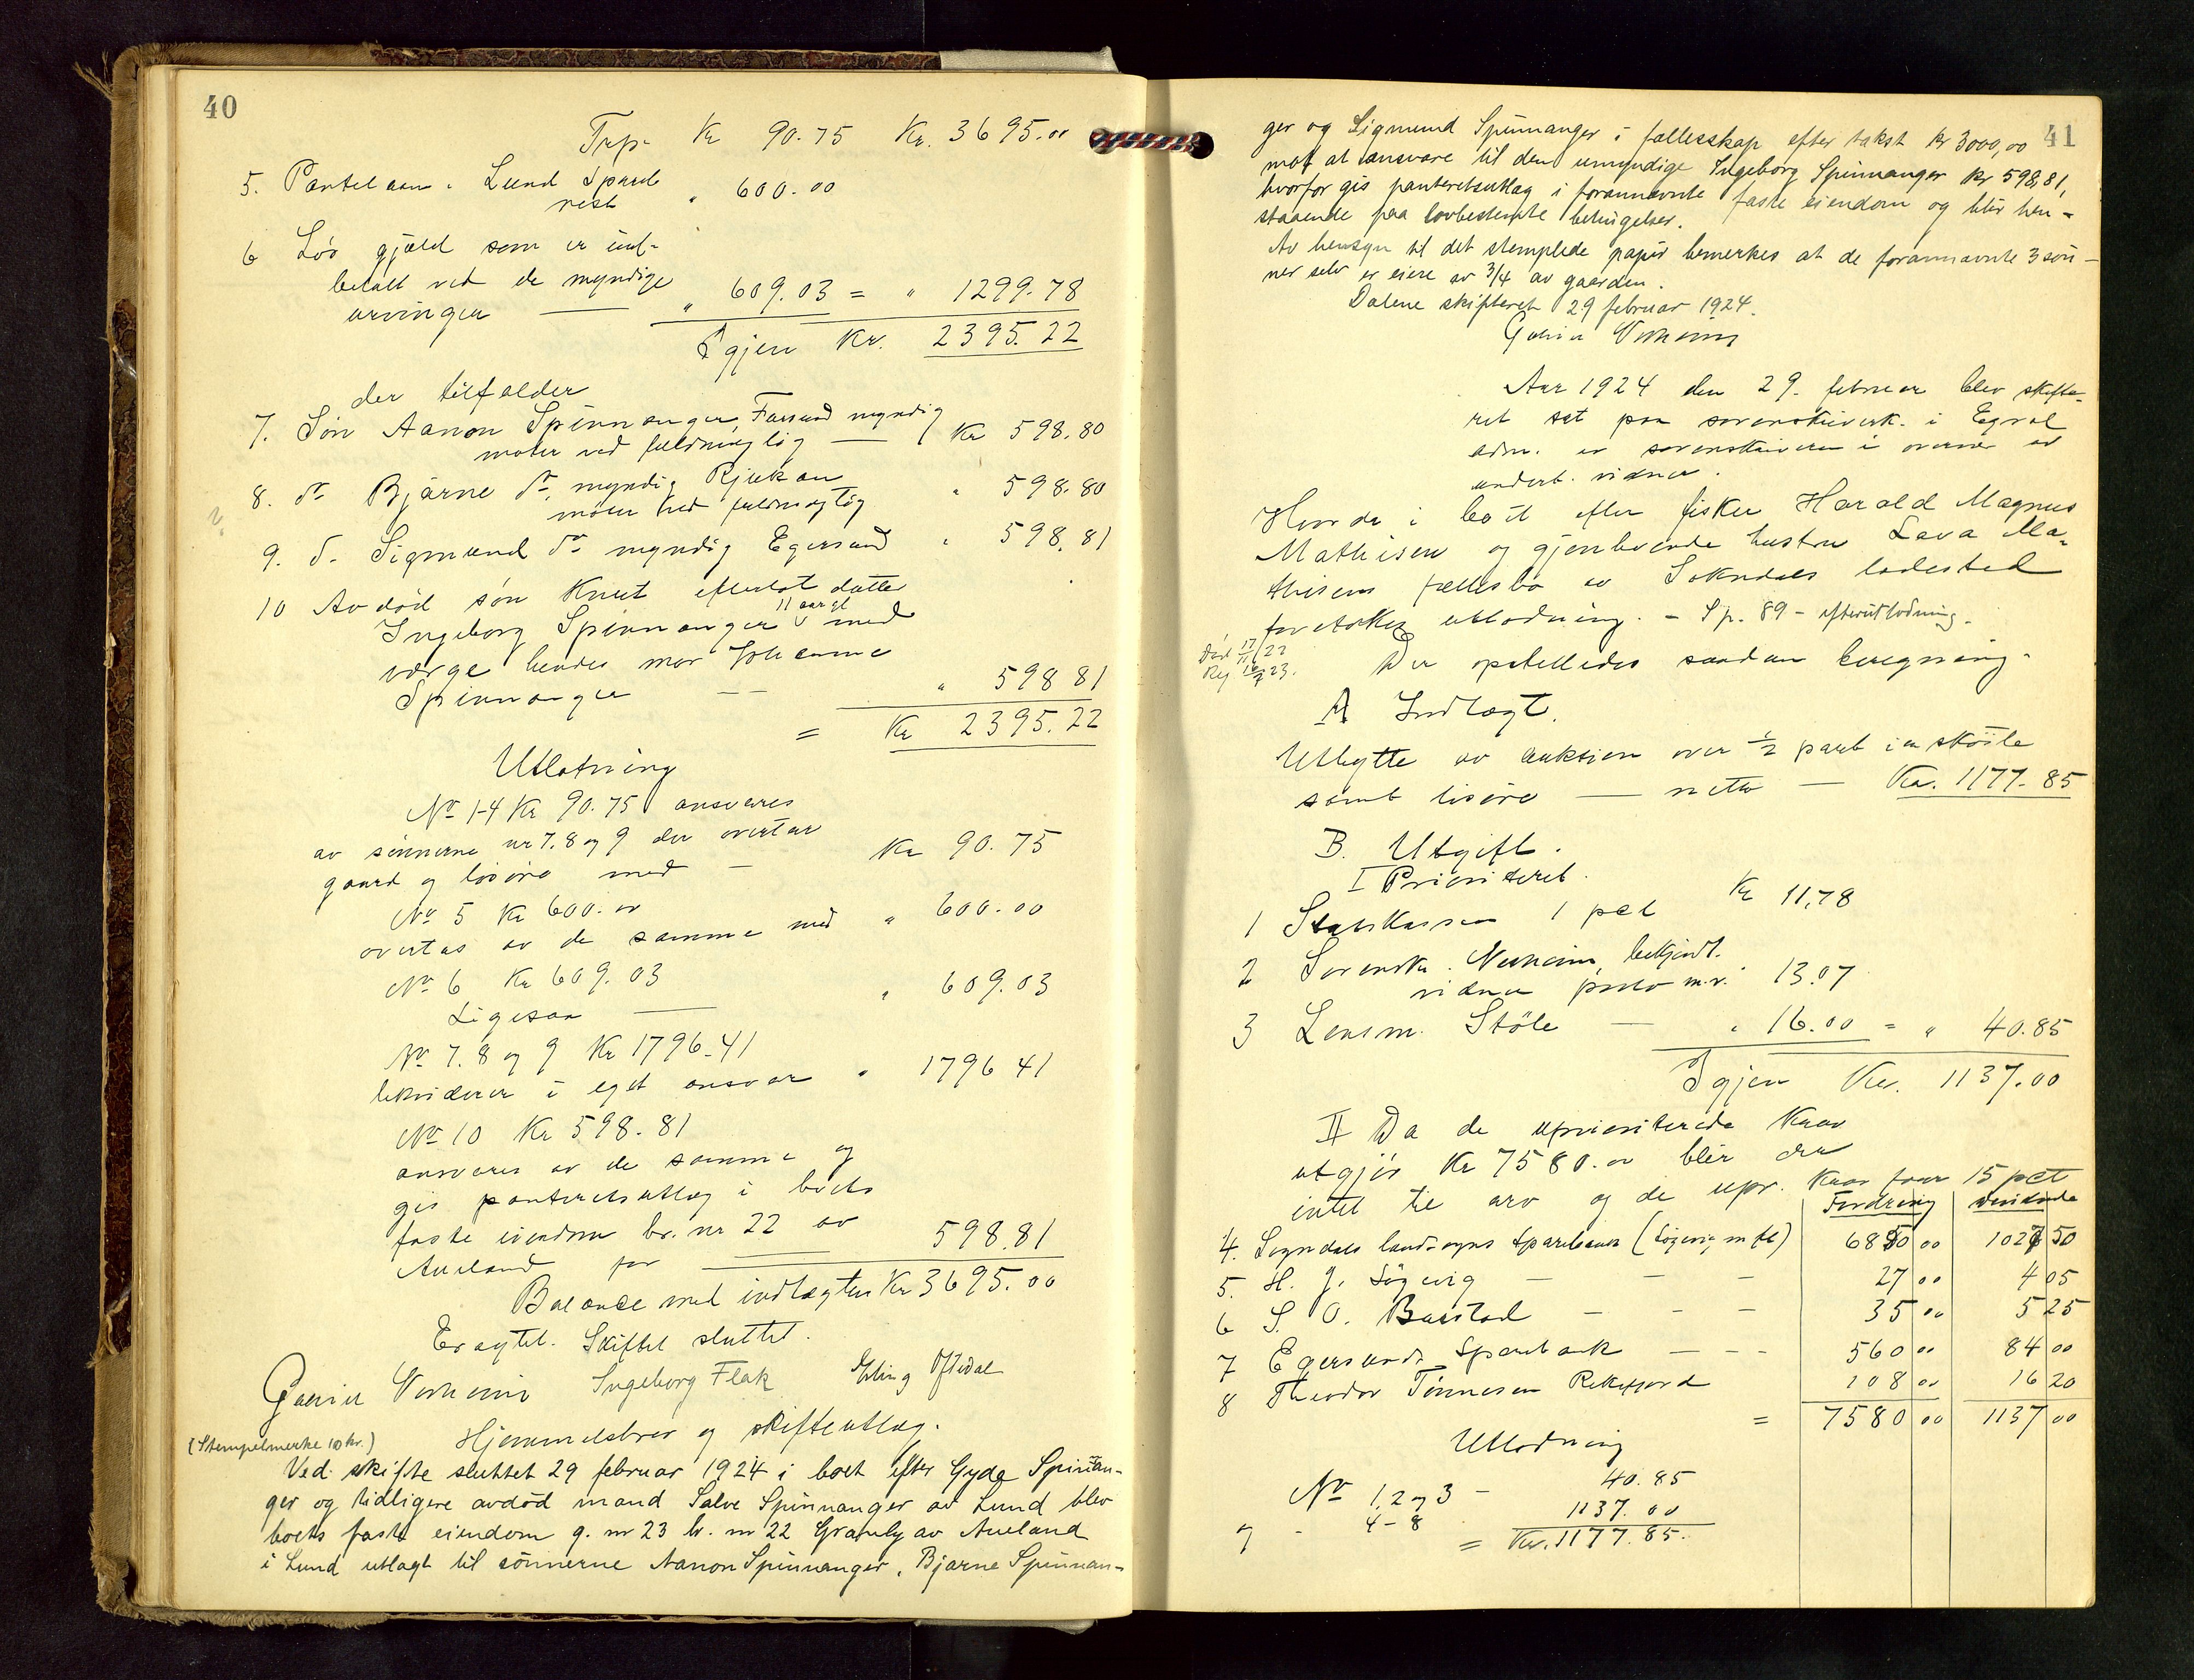 40
Trp. Kr 90.75 Kr. 3695.00
5. Pantelaan i Lund Spareb
rest " 600.00
6 Løs gjæld som er ind-
betalt ved de myndige
arvinger — " 609.03 = " 1299.78
Igjen Kr. 2395.22
der tilfalder
7. Søn Aanon Spinnanger, Farsund myndig
møter ved fuldmægtig — Kr 598.80
8. do Bjarne do, myndig Rjukan
møter ved fuldmægtig " 598.80
9. d. Sigmund do myndig Egersund " 598.81
10 Av død søn Knut efterlat datter
11 aar gl
Ingeborg Spinnanger med
værge hendes mor Johanne
Spinnanger — — " 598 81
= Kr 2395.22
Utlodning
No 1-4 Kr 90.75 ansvares
av sønnerne nr 7.8 og 9 der overtar
gaard og løsøre med — Kr 90.75
No 5 Kr 600.00
overtas av de samme med " 600.00
No 6 Kr 609.03
Ligesaa — " 609.03
No 7.8 og 9 Kr 1796.41
likviderer i eget ansvar " 1796 41
No 10 Kr 598.81
ansvares av de samme og
gis panteretsutlæg i boets
faste eiendom br. nr 22 av
Aueland for — 598.81
Balance med indtægten Kr 3695.00
Eragtet. Skiftet sluttet.
Ingeborg Flak Erling Oftedal
(Stempelmerke 10 kr.) Hjemmelsbrev og skifteutlæg.
Ved skifte sluttet 29 februar 1924 i boet efter Gyda Spinnan-
ger og tidligere avdød mand Salve Spinnanger av Lund blev
boets faste eiendom g. nr 23 br. nr 22 Granly av Aueland
i Lund utlagt til sønnerne Aanon Spinnanger, Bjarne Spinnan-
41
ger og Sigmund Spinnanger i fællesskap efter takst kr 3000,00
mot at ansvare til den umyndige Ingeborg Spinnanger kr 598,81,
hvorfor gis panteretsutlæg i forannævnte faste eiendom og blir hen-
staaende paa lovbestemte betingelser.
Av hensyn til det stemplede papir bemerkes at de forannævnte 3 søn-
ner selv er eiere av 3/4 av gaarden.
Dalene skifteret 29 februar 1924.
Aar 1924 den 29. februar blev skifte-
ret sat paa sorenskriverk. i Egrsd
adm. av sorenskriveren i overvær av
undert. vidner.
Hvorda i boet efter fisker Harald Magnus
Mathisen og gjenlevende hustru Lava Ma-
thisens fællesbo av Sokndals ladested
foretokes utlodning. - Sp. 89 - efterutlodning.
Død 17/11 22
Reg 16/7 23. Der opstilledes saadan beregning.
A Indtægt.
Utbytte av auktion over 1/2 part i en skøite
samt løsøre — netto — Kr. 1177-85
B. Utgift.
I Prioriteret.
1 Statskassen 1 pct Kr 11,78
2 Sorenskr. bekjendt.
vidner porto m.v. 13.07
3 Lensm. Støle — " 16.00 = " 40.85
Igjen Kr. 1137.00
II Da de uprioriterede krav
utgjør Kr 7580.00 blir der
intet til arv og de upr. krav faar 15 pct
Fordring Dividende
4. Sogndals landsogns Sparebank (Løgevig m fl) 6850 00 1027 50
5. H. J. Løgevig — — — 27 00 4 05
6 S. O. Barstad — — — 35 00 5 25
7 Egersunds Sparebank — — — 560 00 84 00
8 Theodor Tønnesen Rekefjord 108 00 16 20
= 7580 00 1137 00
Utlodning
No 1, 2 og 3 — 40.85
og - 4-8 1137.00
= Kr. 1177.85.